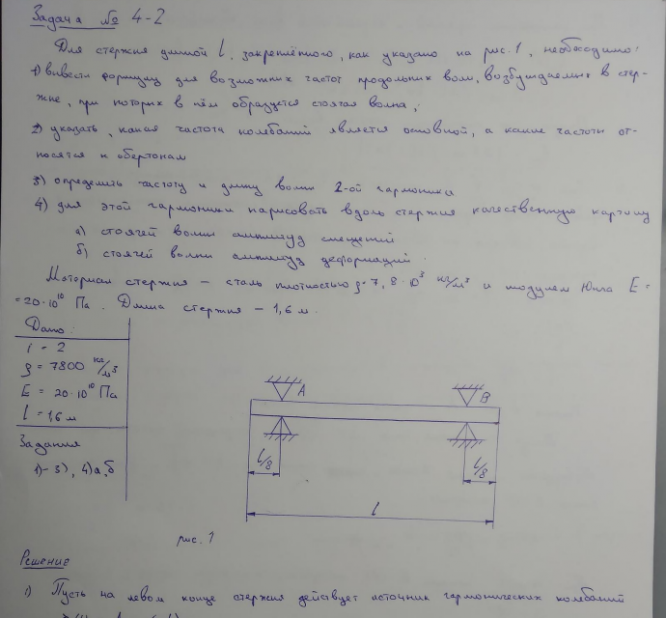 Задача № 4-2
Для стержня длиной l, закреплённого, как указано на рис. 1, необходимо:
1) вывести формулу для возможных частот продольных волн, возбуждаемых в стер-
жне, при которых в нём образуется стоячая волна;
2) указать, какая частота колебаний является основной, а какие частоты от-
носятся к обертонам
3) определить частоту и длину волны 2-ой гармоники
4) для этой гармоники нарисовать вдоль стержня качественную картину
а) стоячей волны амплитуд смещений
б) стоячей волны амплитуд деформаций.
Материал стержня – сталь плотностью ρ=7,8·10³ кг/м³ и модулем Юнга E=
=20·10¹⁰ Па. Длина стержня – 1,6 м.
Дано:
i = 2
ρ = 7800 кг/м³
E = 20·10¹⁰ Па
l = 1,6 м
Задания
1)-3), 4)а,б
A
B
l/8
l/8
l
рис. 1
Решение
1) Пусть на левом конце стержня действует источник гармонических колебаний